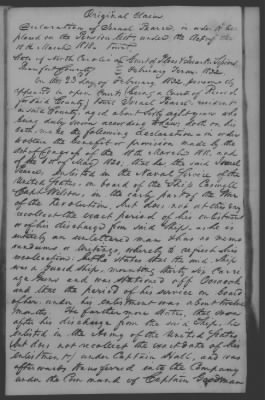 Original Claim
Declaration of Israel Pearce, in order to be
placed on the Pension list under the Act of the
18th March 1818.
State of North Carolina Court of Pleas & Quarter Sessions
County February Term 1832
On the 23 day of February 1832 personally
appeared in open Court, being a Court of Record
for said County, Israel Pearce resident
in said County, aged about sixty eight years who
being duly sworn according to law, doth on his
oath, make the following declaration in order
to obtain the benefit of provision made by the
act of Congress of the 18th March 1818, and
of the 1st of May 1820, that he the said Israel
Pearce, enlisted in the Naval Service of the
United States, on board of the Ship
Capt. in the early part of the War
of the Revolution, but does not at this day
recollect the exact period of his enlistment
or his discharge from said Ship, as he is
entirely an unlettered man & has no memo-
randums or writings, whereby to refresh his
recollection. But he states that the said Ship
was a guard ship, mounting thirty six carri-
age guns and was stationed off
and that the period of his service on board
of her, under his enlistment was about twelve
months. He furthermore states, that soon
after his discharge from the said Ship, he
enlisted in the Army of the United States
but does not recollect the exact date of his
enlistment, under Captain Hall, and was
afterwards transferred into the Company
under the Command of Captain Goodman